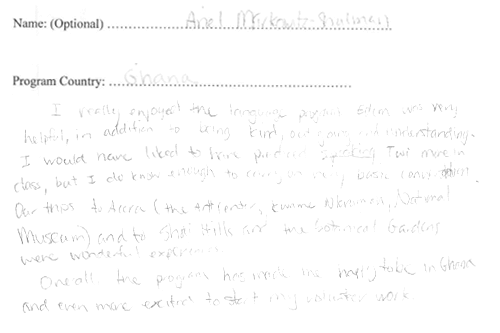 Name: (Optional) Ariel
Program Country: Ghana
I really enjoyed the language program. Edem was very
helpful, in addition to being kind, outgoing, and understanding.
I would have liked to have practiced speaking Twi more in
class, but I do know enough to carry on very basic conversation.
Our trips to Accra (the Art Center, Kwame Nkrumah, National
Museum) and to Shai Hills and the Botanical Gardens
were wonderful experiences.
Overall, the program has made me happy to be in Ghana
and even more excited to start my volunteer work